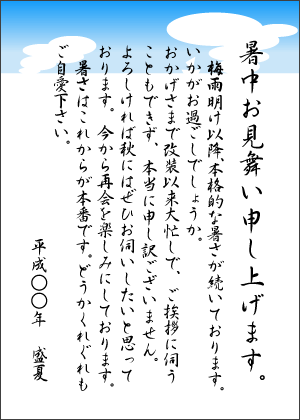 暑中お見舞い申し上げます。
梅雨明け以降本格的な暑さが続いております。
いかがお過ごしでしょうか。
おかげさまで改装以来大忙しで、ご挨拶に伺う
こともできず、本当に申し訳ございません。
よろしければ秋にはぜひお伺いしたいと思って
おります。今から再会を楽しみにしております。
暑さはこれからが本番です。どうかくれぐれも
ご自愛下さい。
平成〇〇年 盛夏